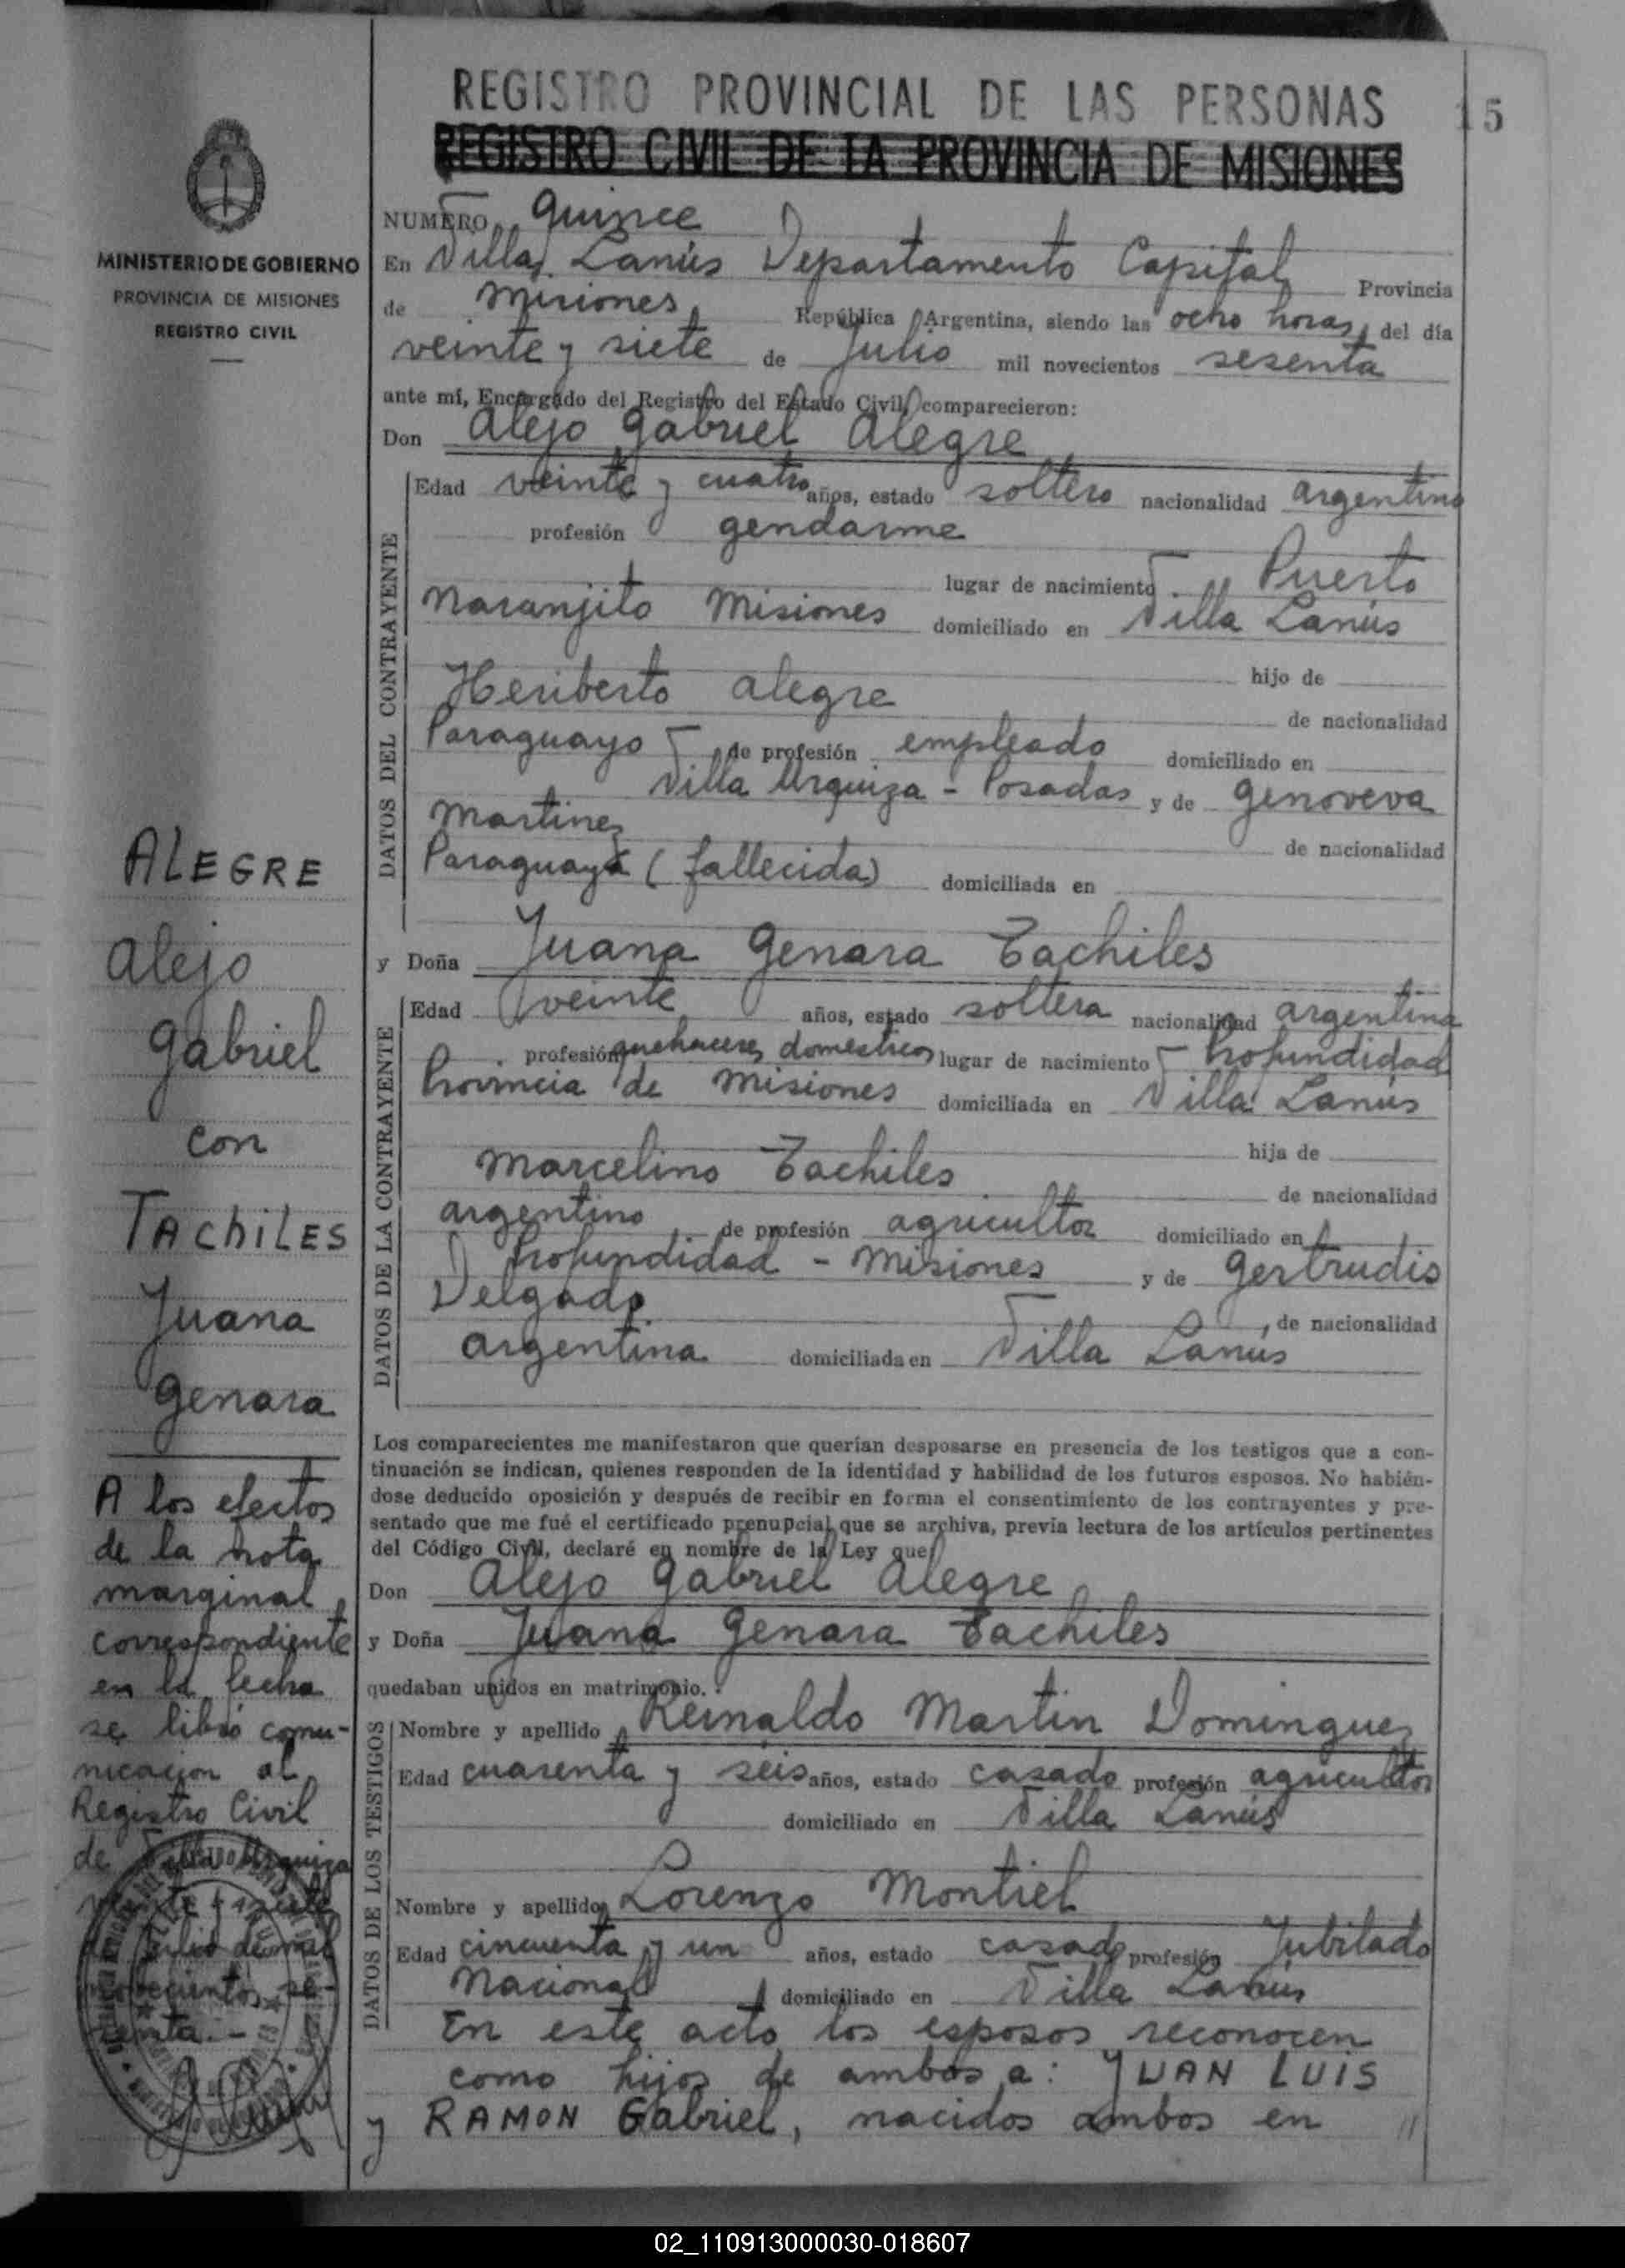 REGISTRO PROVINCIAL DE LAS PERSONAS
15
REGISTRO CIVIL DE LA PROVINCIA DE MISIONES
MINISTERIO DE GOBIERNO
PROVINCIA DE MISIONES
REGISTRO CIVIL
NUMERO Quince
En Villa Lanús Departamento Capital Provincia
de Misiones República Argentina, siendo las ocho horas, del día
veinte y siete de Julio mil novecientos sesenta
ante mí, Encargado del Registro del Estado Civil, comparecieron:
Don Alejo Gabriel Alegre
DATOS DEL CONTRAYENTE
Edad veinte y cuatro años, estado soltero nacionalidad argentino
profesión gendarme
lugar de nacimiento Puerto
Naranjito Misiones domiciliado en Villa Lanús
hijo de
Heriberto Alegre de nacionalidad
Paraguayo de profesión empleado domiciliado en
Villa Urquiza - Posadas y de Genoveva
Martinez
de nacionalidad
Paraguaya (fallecida) domiciliada en
y Doña Juana Genara Tachiles
DATOS DE LA CONTRAYENTE
Edad veinte años, estado soltera nacionalidad argentina
profesión quehaceres domesticos lugar de nacimiento Profundidad
Provincia de Misiones domiciliada en Villa Lanús
hija de
Marcelino Tachiles de nacionalidad
argentino de profesión agricultor domiciliado en
Profundidad - Misiones y de Gertrudis
Delgado
, de nacionalidad
argentina domiciliada en Villa Lanús
Los comparecientes me manifestaron que querían desposarse en presencia de los testigos que a con-
tinuación se indican, quienes responden de la identidad y habilidad de los futuros esposos. No habién-
dose deducido oposición y después de recibir en forma el consentimiento de los contrayentes y pre-
sentado que me fué el certificado prenupcial que se archiva, previa lectura de los artículos pertinentes
del Código Civil, declaré en nombre de la Ley que
Don Alejo Gabriel Alegre
y Doña Juana Genara Tachiles
quedaban unidos en matrimonio.
DATOS DE LOS TESTIGOS
Nombre y apellido Reinaldo Martin Dominguez
Edad cuarenta y seis años, estado casado profesión agricultor
domiciliado en Villa Lanús
Nombre y apellido Lorenzo Montiel
Edad cincuenta y un años, estado casado profesión Jubilado
Nacional domiciliado en Villa Lanús
En este acto los esposos reconocen
como hijos de ambos a: JUAN LUIS
y RAMON Gabriel, nacidos ambos en //
ALEGRE
Alejo
Gabriel
con
TACHILES
Juana
Genara
A los efectos
de la nota
marginal
correspondiente
en la fecha
se libró comu-
nicación al
Registro Civil
de Villa Urquiza
veinte y siete
de Julio de mil
novecientos se-
senta.-
02_110913000030-018607